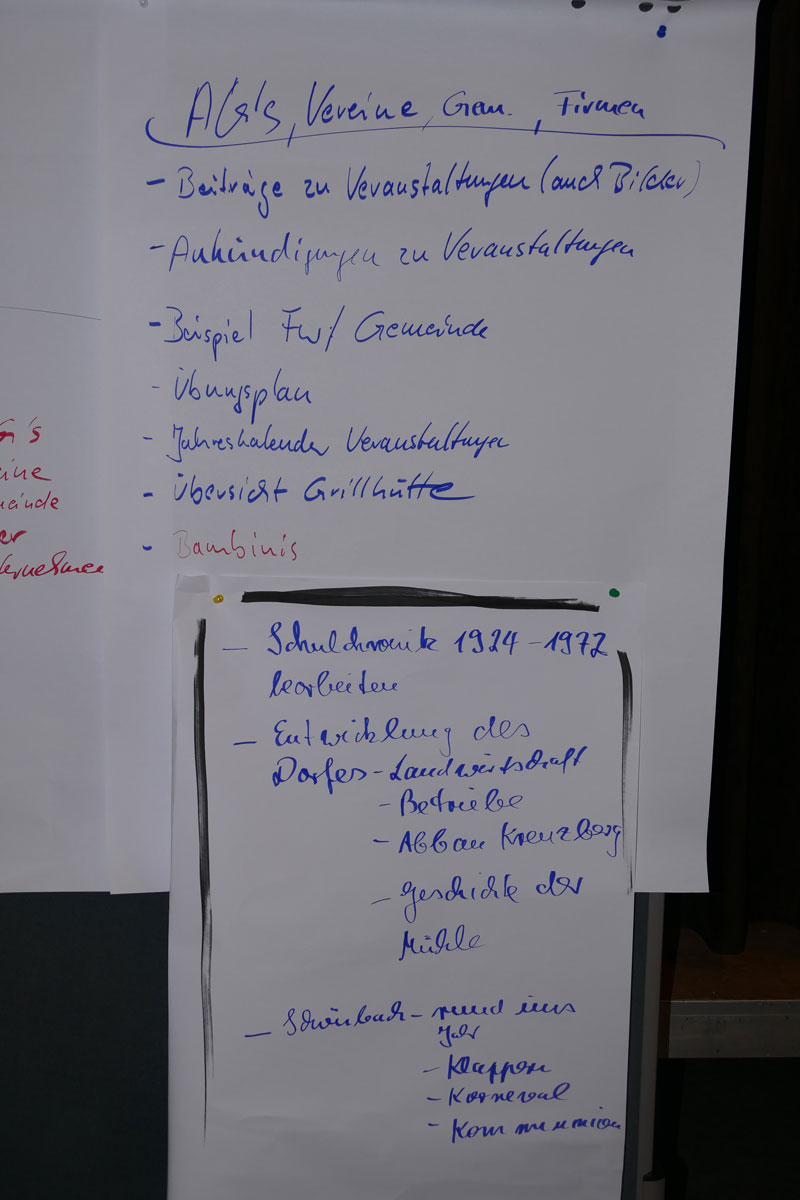 AG's, Vereine, Gem., Firmen
- Beiträge zu Veranstaltungen (auch Bilder)
- Ankündigungen zu Veranstaltungen
- Beispiel FW/ Gemeinde
- Übungsplan
- Jahreskalender Veranstaltungen
- Übersicht Grillhütte
- Bambinis
G's
eine
meinde
er
ternehmen
- Schulchronik 1924-1972
bearbeiten
- Entwicklung des
Dorfes - Landwirtschaft
- Betriebe
- Abbau Kreuzberg
- Geschichte der
Mühle
- Schönbach - rund ums
Jahr
- Klappern
- Karneval
- Kommunion